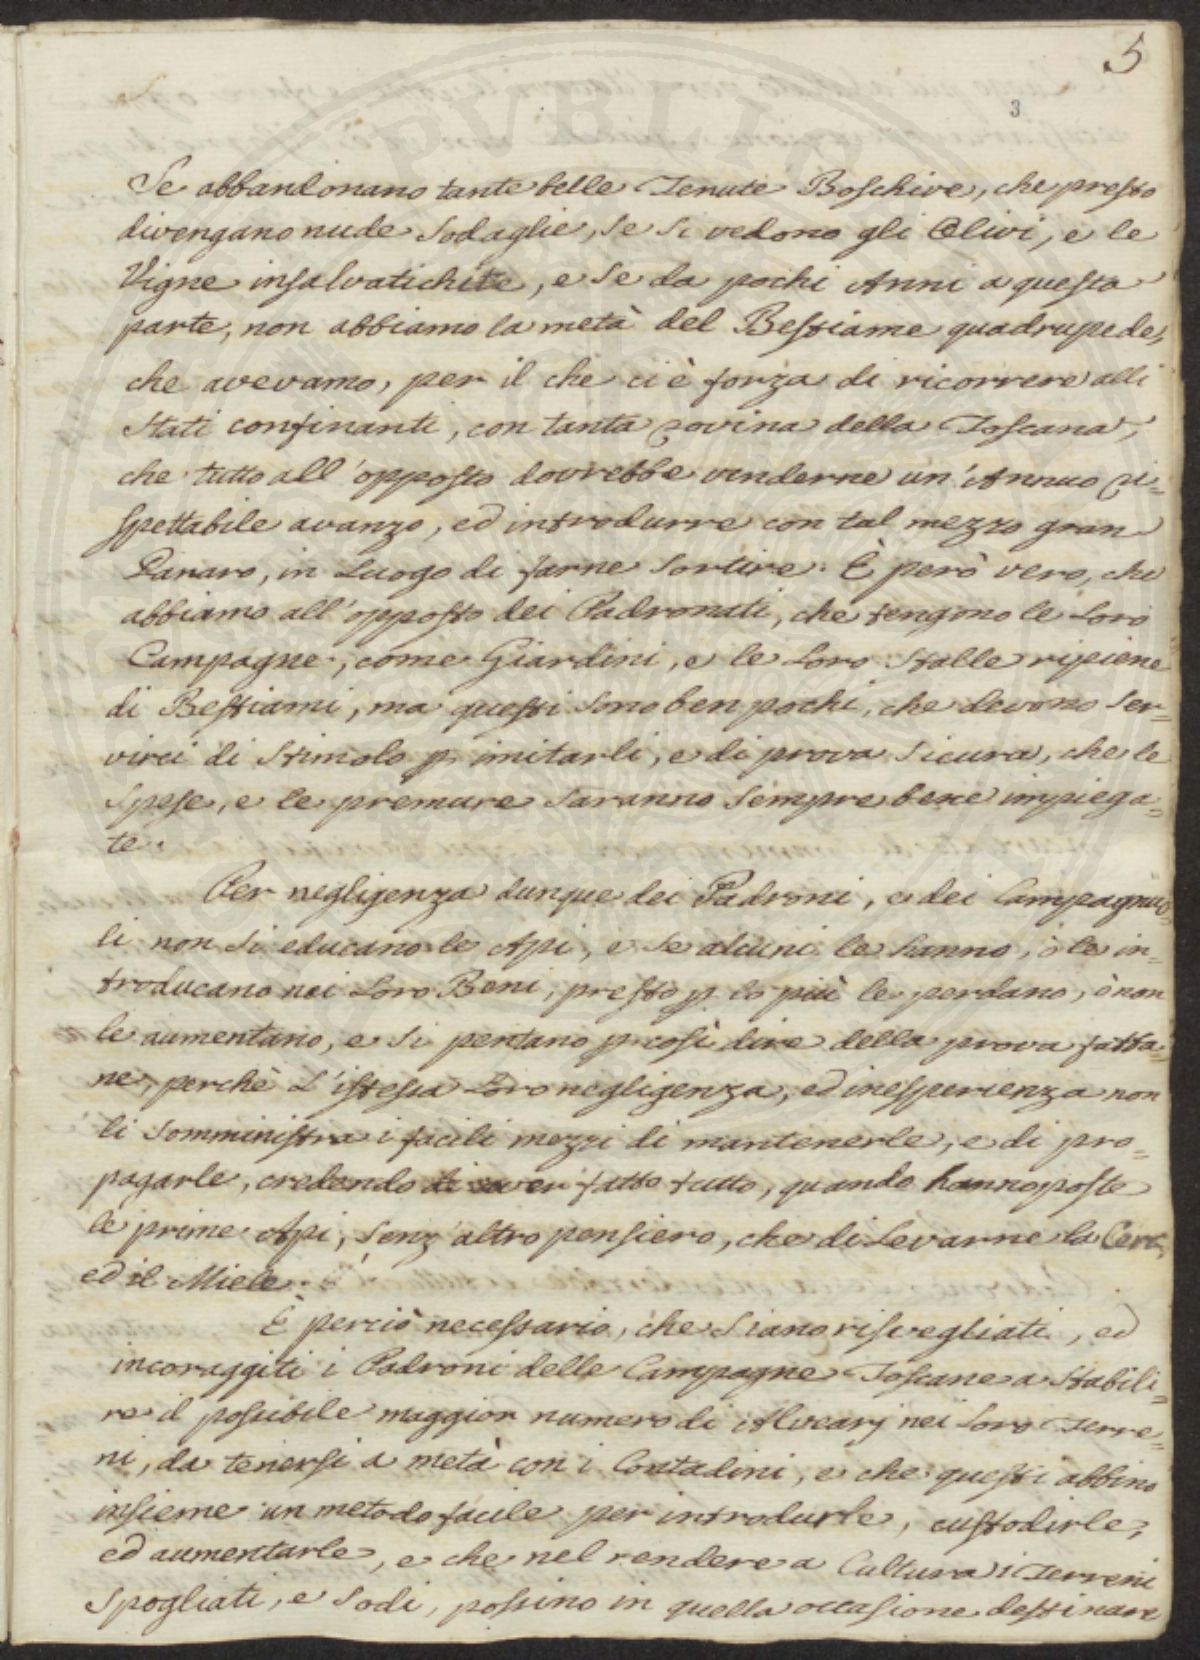 5
3
Se abbandonano tante belle Tenute Boschive, che presto
divengano nude Sodaglie, se si vedono gli Olivi, e le
Vigne insalvatichite, e se da pochi Anni a questa
parte, non abbiamo la metà del Bestiame quadrupede,
che avevamo, per il che ci è forza di ricorrere alli
Stati confinanti, con tanta rovina della Toscana,
che tutto all'opposto dovrebbe venderne un'Annuo ri=
spettabile avanzo, ed introdurre con tal mezzo gran
Danaro, in Luogo di farne Sortire. È però vero, che
abbiamo all'opposto dei Padronati, che tengono le Loro
Campagne, come Giardini, e le Loro Stalle ripiene
di Bestiami, ma questi sono ben pochi, che devono Ser=
virci di Stimolo p imitarli, e di prova Sicura, che le
Spese, e le premure saranno sempre bene impiega=
te.
Per negligenza dunque dei Padroni, e dei Campagnuo=
li non si educano le Api, e se alcuni le hanno, ò le in=
troducano nei Loro Beni, presto p lo più le perdano, ò non
le aumentano, e si pentano p così dire della prova fatta=
ne, perchè L'istessa Loro negligenza, ed inesperienza non
li somministra i facili mezzi di mantenerle, e di pro=
pagarle, credendo di aver fatto tutto, quando hanno poste
le prime Api, senz'altro pensiero, che di Levarne la Cera,
ed il Miele.
È perciò necessario, che Siano risvegliati, ed
incoraggiti i Padroni delle Campagne Toscane a Stabili=
re il possibile maggior numero di Alvearj nei Loro Terre=
ni, da tenersi a metà con i Contadini, e che questi abbino
insieme un metodo facile per introdurle, custodirle,
ed aumentarle, e che nel rendere a Cultura i Terreni
Spogliati, e Sodi, possino in quella occasione destinare